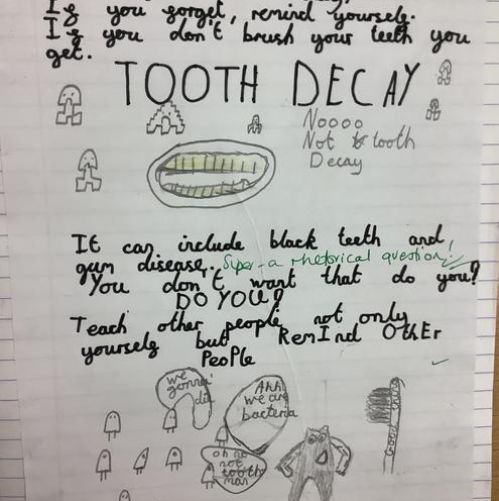 If you forget, remind yourself.
If you don't brush your teeth you
get.
TOOTH DECAY
Noooo
Not tooth
Decay
It can include black teeth and,
gum disease. Super - a rhetorical question.
You don't want that do you?
DO YOU?
Teach other people not only
yourself but RemInd OthEr
PeoPle
we
gonna
di
Ahh
we are
bacteria
oh no
not
tooth
man